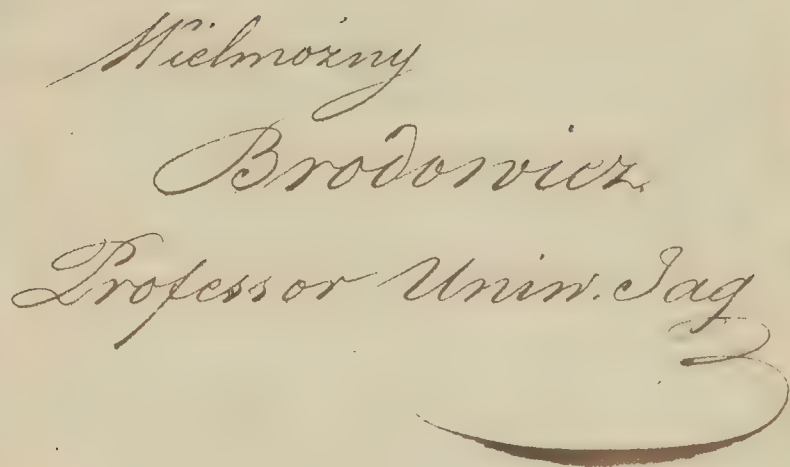 Wielmożny
Brodowicz.
Professor Uniw. Jag